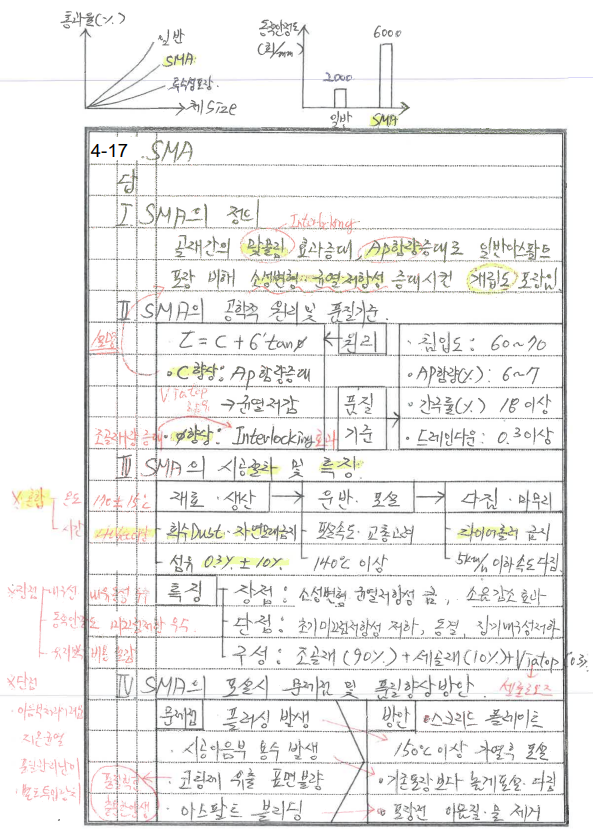 통과율(%)
일반
SMA
체 size
동적안정도
(회/mm)
2000
6000
일반
SMA
4-17 . SMA
답
Ⅰ SMA의 정의
Interlocking
골재간의 맞물림 효과증대, Ap함량증대로 일반아스팔트
포장 비해 소성변형·균열저항성 증대시킨 개립도 포장임
Ⅱ SMA의 공학적 원리 및 품질기준
τ = C + σ'tanø
원리
·침입도 : 60~70
·C향상 : Ap함량증대
·AP함량(%) : 6~7
Viatop
→ 균열저감
품질
·간극률(%) 18이상
조골재량 증대
·ø향상 : Interlocking효과
기준
·드레인다운 : 0.3이상
Ⅲ SMA의 시공절차 및 특징
※혼합
온도
170±15℃
재료·생산
운반·포설
다짐·마무리
시간
회수Dust·자연모래금지
포설속도·교통고려
타이어롤러 금지
섬유 0.3% ± 10%
140℃ 이상
5km/h 이하속도다짐
※관점
내유동성 우수
특징
장점 : 소성변형 균열저항성 큼, 소음감소효과
미끄럼저항 우수
단점 : 초기미끄럼저항성 저하, 동절, 장기내구성저하
유지보수 비용 절감
구성 : 조골재(90%)+세골재(10%)+Viatop(0.3%)
셀룰로오즈
※단점
Ⅳ SMA의 포설시 문제점 및 품질향상방안
문제점
플러싱 발생
방안
스크리드 플레이트
지온균열
·시공이음부 용수 발생
150℃이상 가열후 포설
품질관리난이
·코팅재 유출 표면불량
·기존포장보다 높게포설·다짐
·아스팔트 블리딩
·포장전 이물질·물 제거